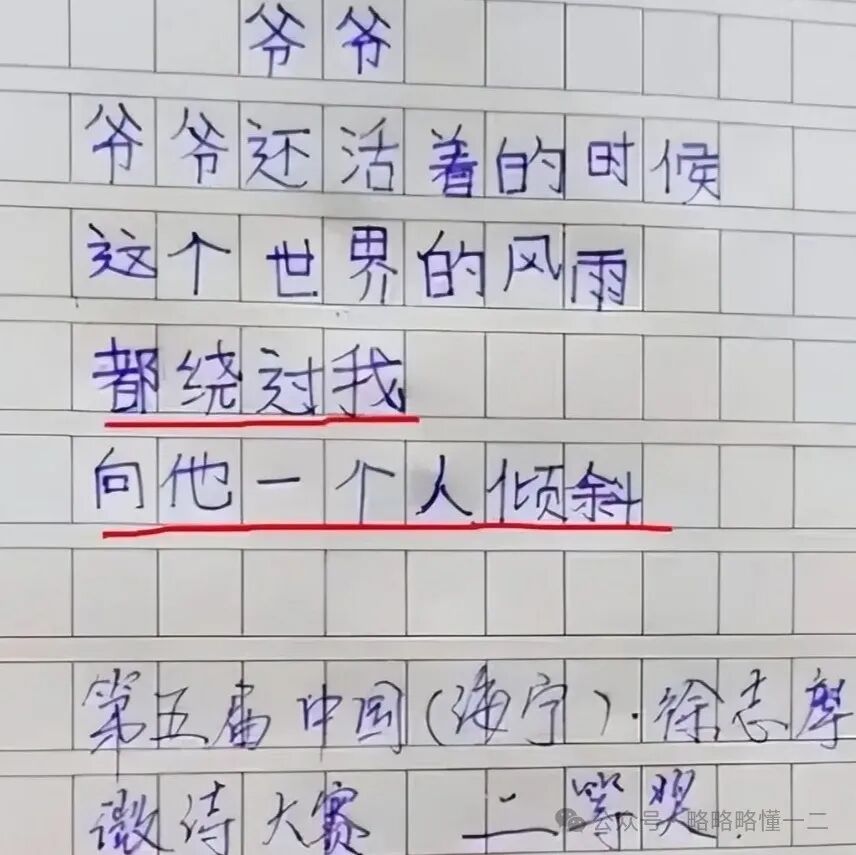 爷爷
爷爷还活着的时候
这个世界的风雨
都绕过我
向他一个人倾斜
第五届中国(海宁)·徐志摩
微诗大赛 二等奖.
公众号·略略略懂一二